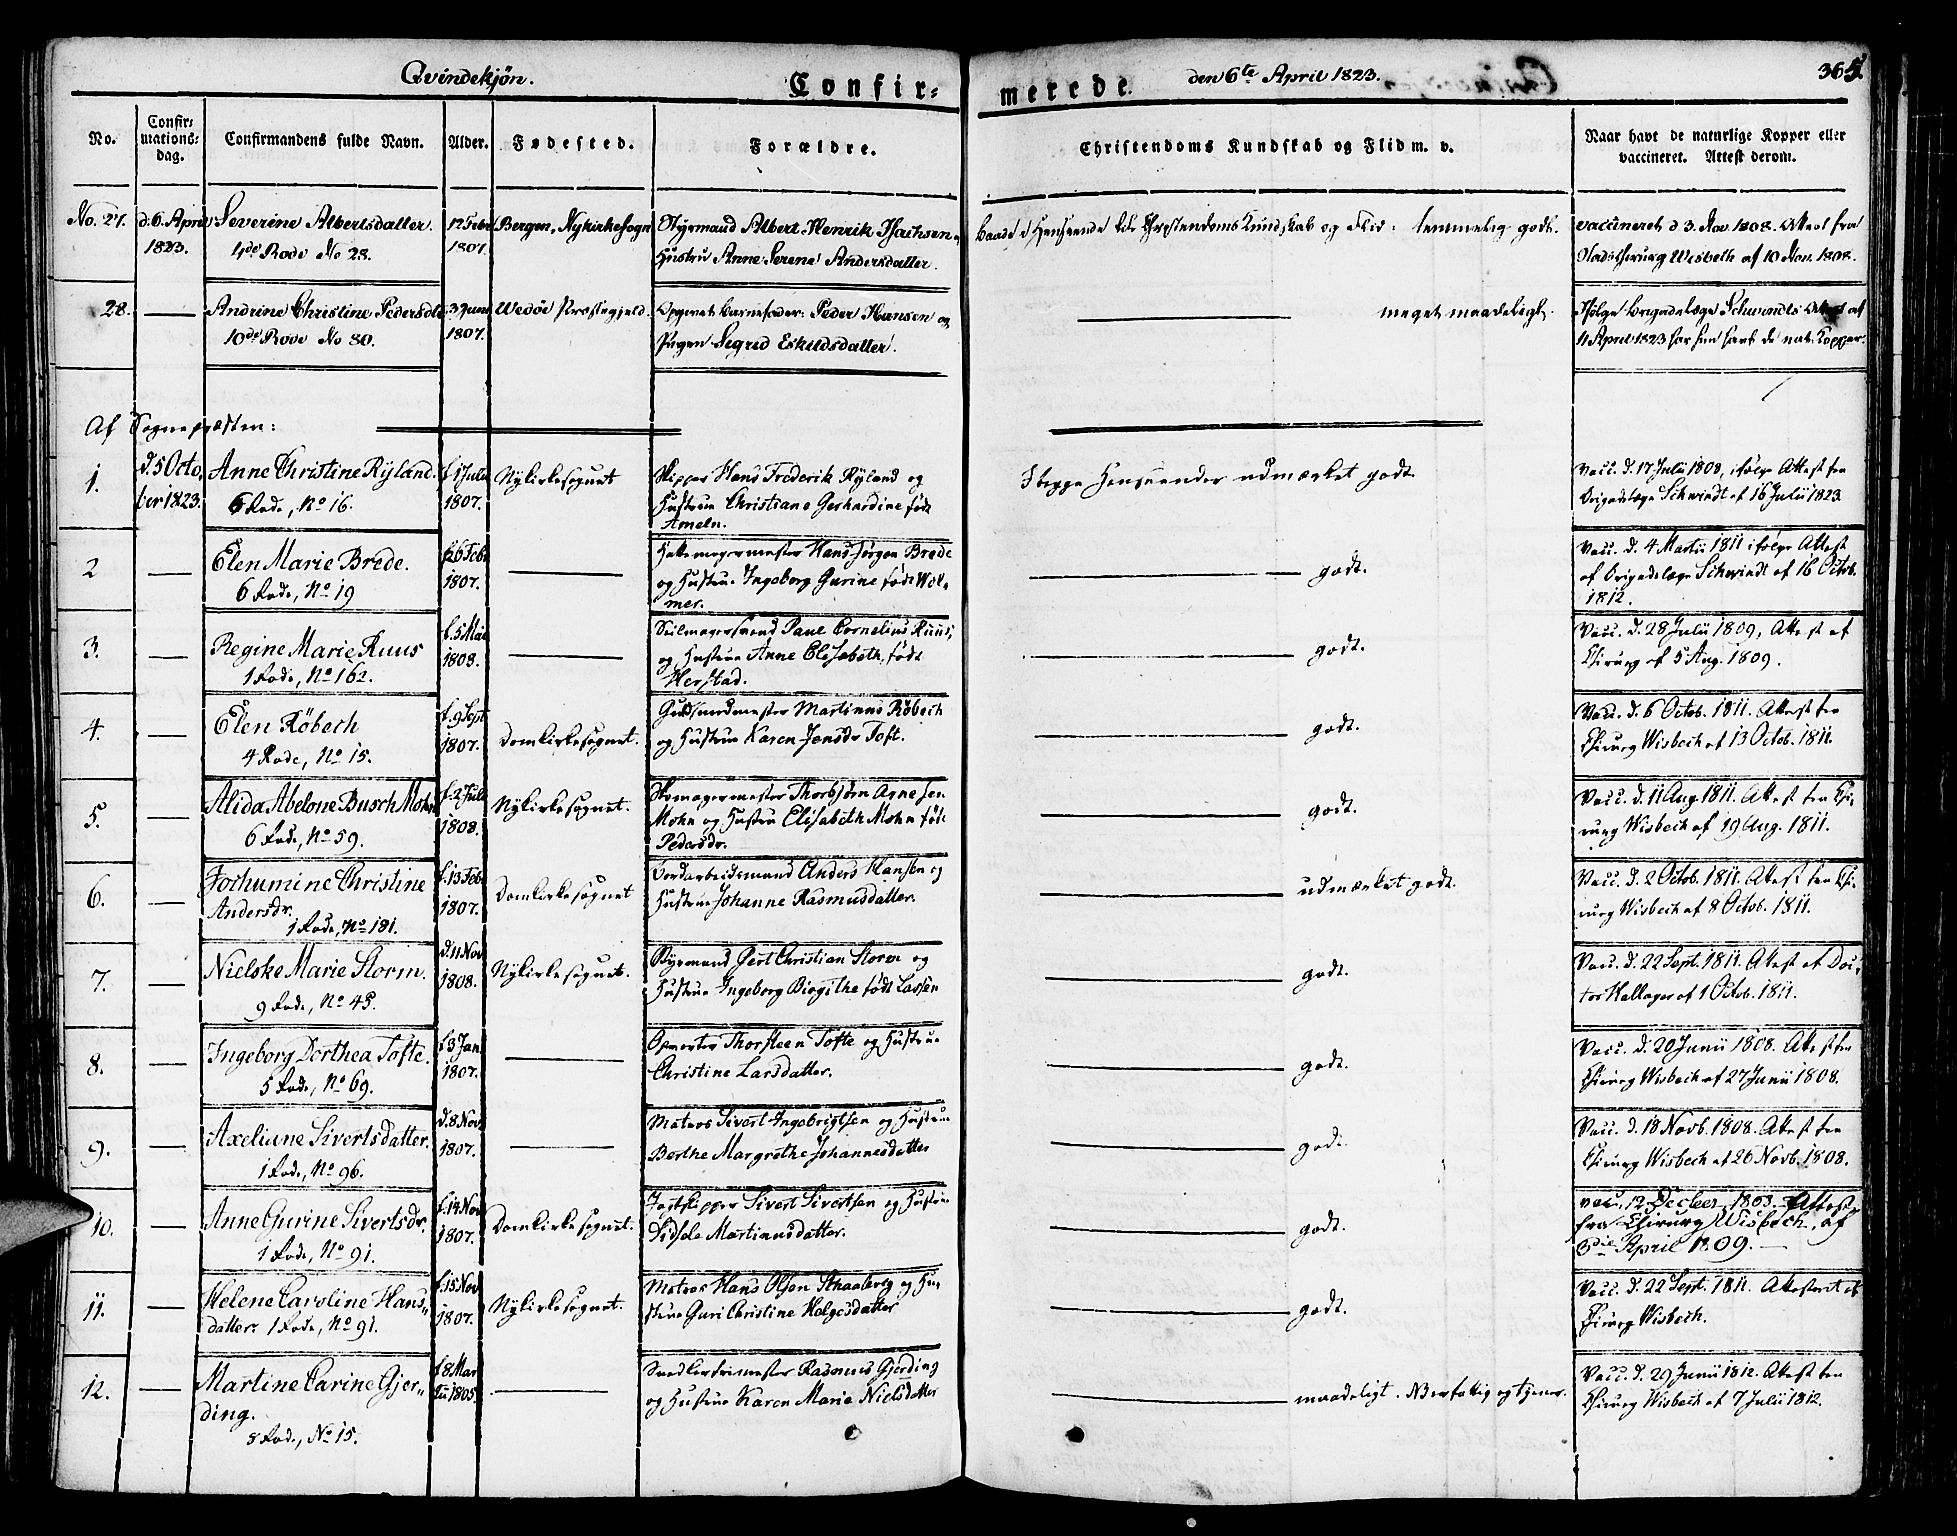 Qvindekjön.
Confir-
merede
den 6te April 1823.
365.
No.
Confirmations-dag.
Confirmandens fulde Navn.
Alder.
Fødested.
Forældre.
Christendoms Kundskab og Flid m. v.
Naar havt de naturlige Kopper eller
vaccineret. Attest derom.
No. 27. d. 6. April Severine Albertsdatter. 12 Febr Bergen, Nykirkesogn Styrmand Albert Henrik Isachsen og baade i Henseende til Christendoms Kundskab og Flid: temmelig godt. vaccineret d 3 Nov. 1808. Attest fra
1823. 4de Rode No 28. 1807. Hustru Anne Serene Andersdatter. Wisbech af 10 Nov. 1808.
28. — Andrine Christine Pedersdtr 3 Juni Wedöe Præstegjeld. Opgivet Barnefader: Peder Hansen og — meget maadeligt. Ifölge Brigadelæge Schwindts Attest af
10de Rode No 80. 1807. Pigen Sigrid Eskildsdatter. 11 April 1823 har hun havt de nat. Kopper.
Af Sognepræsten:
1. d. 5 Octo- Anne Christine Ryland. f. 1 Julii Nykirkesognet Skipper Hans Frederik Ryland og I begge Henseender udmærket godt. Vacc. d. 17 Julii 1808, ifölge Attest fra
ber 1823. 6 Rode, No 16. 1807. Hustrue Christiane Gerhardine födt Brigadelæge Schwindt af 16 Julii 1823.
Ameln.
2 — Elen Marie Brede. f. 26 Febr — Hattemagermester Hans Jörgen Brede — godt. Vacc. d. 4 Martii 1811 ifölge Attest
6 Rode, No 19 1807. og Hustrue Ingeborg Gurine födt Wol- af Brigadelæge Schwindt af 16 Octob.
mer. 1812.
3. — Regine Marie Ruus f. 5 Mai — Seilmagersvend Paul Cornelius Ruus, — godt. Vacc. d. 28 Julii 1809, Attest af
1 Rode, No 162. 1808. og Hustrue Anne Elisabeth, födt Chirurg af 5 Aug. 1809.
Herstad.
4. — Elen Röbech f. 9 Sept Domkirkesognet. Guldsmedmester Martinus Röbech — godt. Vacc. d. 6 Octob. 1811. Attest fra
4 Rode, No 15. 1807. og Hustrue Karen Jensdr Toft. Chirurg Wisbech af 13 Octob. 1811.
5. — Alida Abelone Busch Mohn f. 2 Juli Nykirkesognet. Skomagermester Thorbjörn Agnesen — godt. Vacc. d. 11 Aug. 1811. Attest fra Chi-
6 Rode, No 59. 1808. Mohn og Hustrue Elisabeth Mohn födt rurg Wisbech af 19 Aug. 1811.
Pedersdr.
6. — Jochumine Christine f. 13 Feb Domkirkesognet Jordarbeidsmand Anders Hansen og — udmærket godt. Vacc. d. 2 Octob. 1811. Attest fra Chi-
Andersdr. 1807. Hustrue Johanne Rasmusdatter. rurg Wisbech af 8 Octob. 1811.
1 Rode, No 181.
7. — Nielske Marie Storm. d. 11 Nov Nykirkesognet. Styrmand Gert Christian Storm og — godt. Vacc. d. 22 Sept. 1811. Attest af Doc-
9 Rode, No 45. 1808. Hustrue Ingeborg Birgithe födt Lassen tor Hallager af 1 Octob. 1811.
8. — Ingeborg Dorthea Tofte. f. 3 Jan. — Thorsteen Tofte og Hustrue — godt. Vacc. d. 20 Junii 1808. Attest fra
5 Rode, No 69. 1807. Christine Larsdatter. Chirurg Wisbech af 27 Junii 1808.
9. — Axeliane Sivertsdatter. d. 8 Nov. — Matros Sivert Ingebrigtsen og Hustrue — godt. Vacc. d. 18 Novb. 1808. Attest fra
1 Rode, No 96. 1807. Berthe Margrethe Johannesdatter Chirurg Wisbech af 26 Novb. 1808.
10. — Anne Gurine Sivertsdr. f. 14 Nov Domkirkesognet. Jagtskipper Sivert Sivertsen og Hustrue — godt. vacc. 12 Decber 1808. Attest
1 Rode, No 91. 1807. Didsele Martinusdatter. fra Chirurg Wisbech, af
3die April 1809.—
11. — Helene Caroline Hans- f. 15 Nov Nykirkesognet. Matros Hans Olsen Straalevig og Hu- — godt. Vacc. d. 22 Sept. 1811. Attesteret af
datter. 1 Rode, No 91. 1807. strue Guri Christine Helgesdatter Chirurg Wisbech.
12. — Martine Carine Gjer- f. 8 Mar- — Snedkermester Rasmus Gjerding — maadeligt. Vacc. d. 29 Junii 1812. Attest fra
ding. tii 1805. og Hustrue Karen Marie Nielsdatter Chirurg Wisbech af 7 Julii 1812.
8 Rode, No 15.